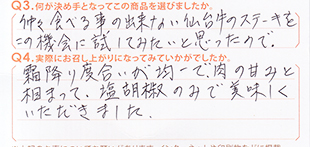 Q3.何が決め手となってこの商品を選びましたか。
仲々食べる事の出来ない仙台牛のステーキを
この機会に試してみたいと思ったので。
Q4.実際にお召し上がりになってみていかがでしたか。
霜降り度合いが均一で肉の甘みと
相まって、塩胡椒のみで美味しく
いただきました。